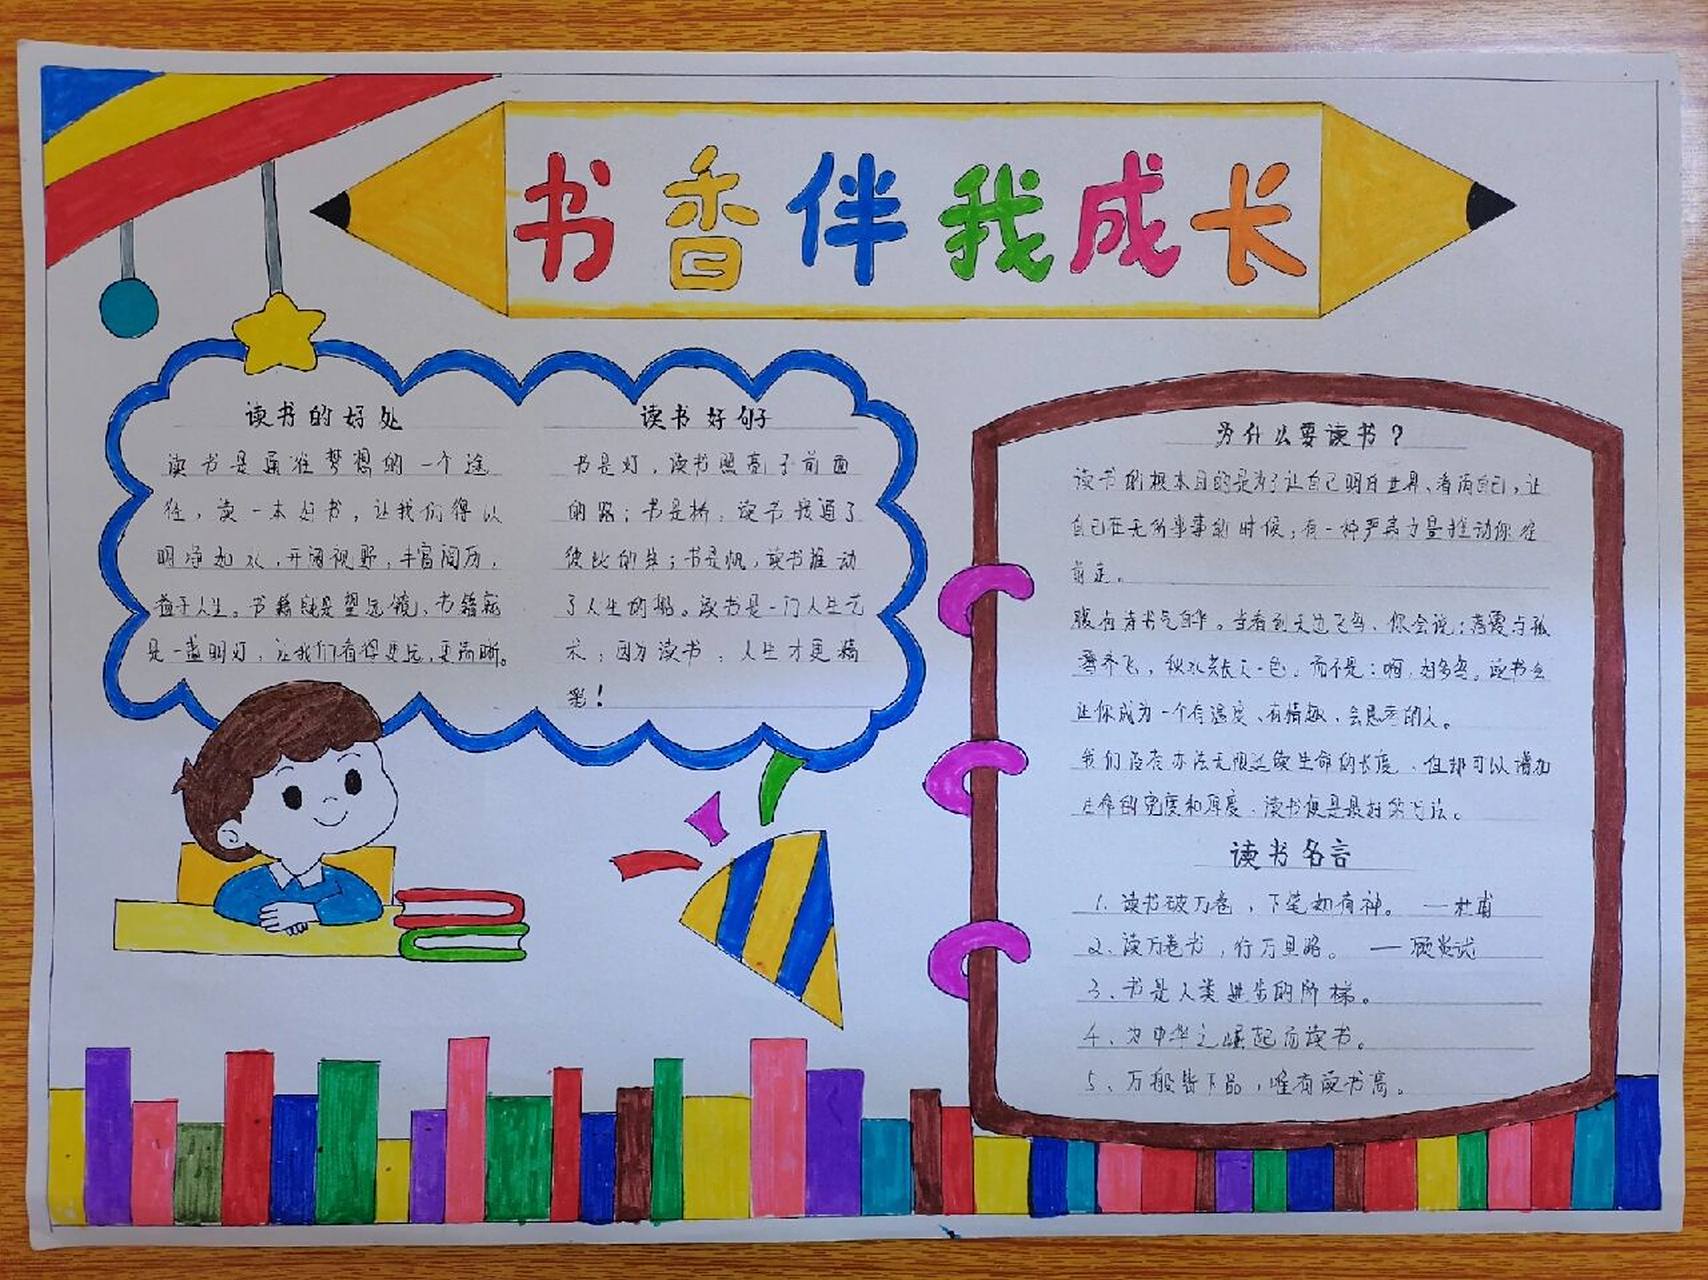 书香伴我成长
读书的好处
读书是通往梦想的一个途
径，读一本好书，让我们得以
明净如水，开阔视野，丰富阅历，
益于人生。书籍就是望远镜，书籍就
是一盏明灯，让我们看得更远，更清晰。
读书好句子
书是灯，读书照亮了前面
的路；书是桥，读书接通了
彼此的岸；书是帆，读书推动
了人生的船。读书是一门人生艺
术，因为读书，人生才更精
彩！
为什么要读书？
读书的根本目的是为了让自己明白世界、看清自己，让
自己在无所事事的时候，有一种严肃力量推动你往
前走。
腹有诗书气自华。当看到天边飞鸟，你会说：落霞与孤
鹜齐飞，秋水共长天一色，而不是：啊，好多鸟。读书会
让你成为一个有温度、有情趣、会思考的人。
我们没有办法无限延续生命的长度，但却可以增加
生命的宽度和厚度，读书便是最好的方法。
读书名言
1、读书破万卷，下笔如有神。 —杜甫
2、读万卷书，行万里路。 —顾炎武
3、书是人类进步的阶梯。
4、为中华之崛起而读书。
5、万般皆下品，唯有读书高。